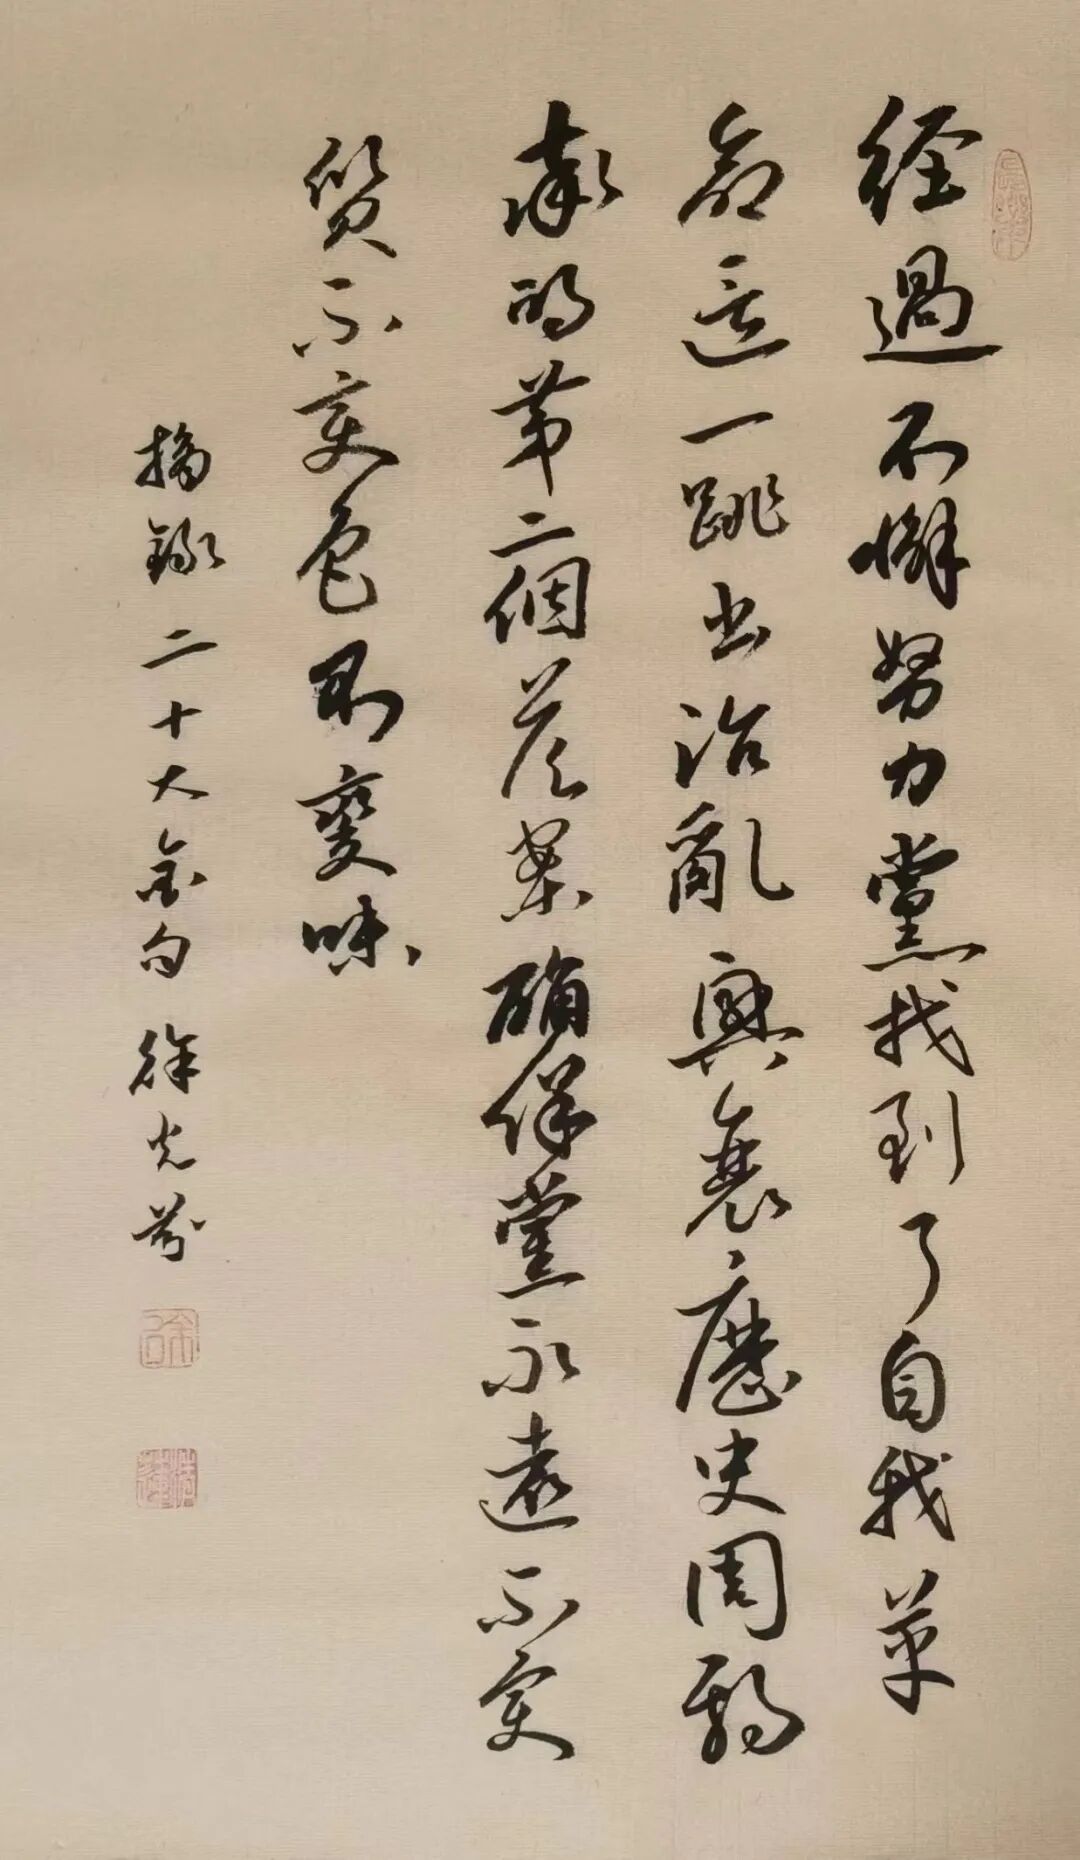 經過不懈努力黨找到了自我革
命這一跳出治亂興衰歷史周期
率的第二個答案確保黨永遠不變
質不變色不變味
摘錄二十大金句 徐光